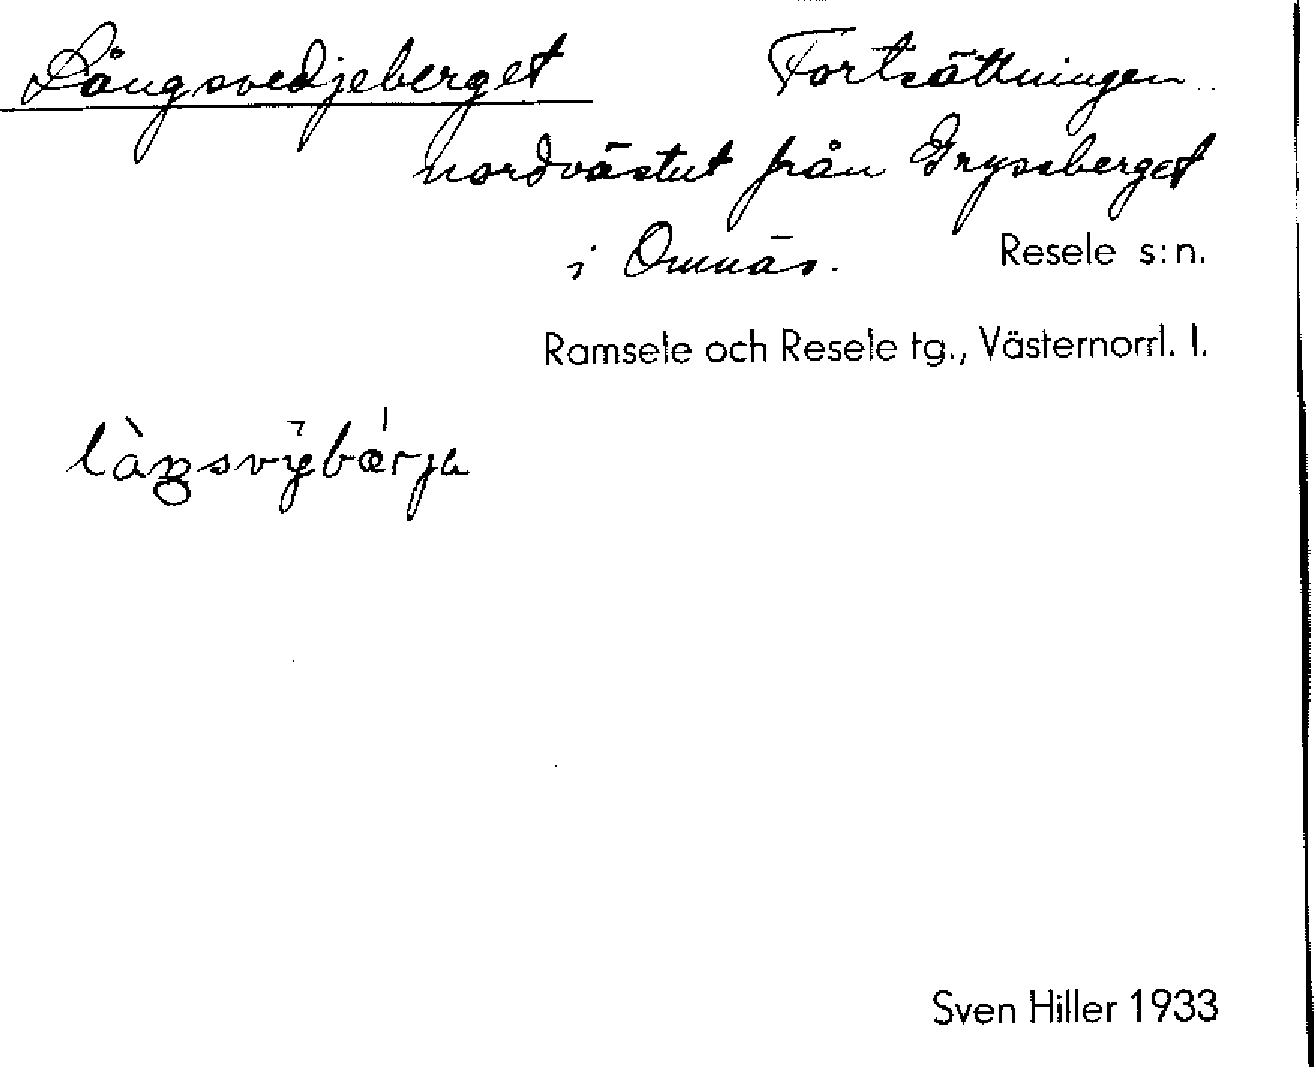 Långsvedjeberget Fortsättningen
nordvästut från Gryssberget
i Omnäs. Resele s:n.
Ramsele och Resele tg., Västernorrl. l.
Sven Hiller 1933